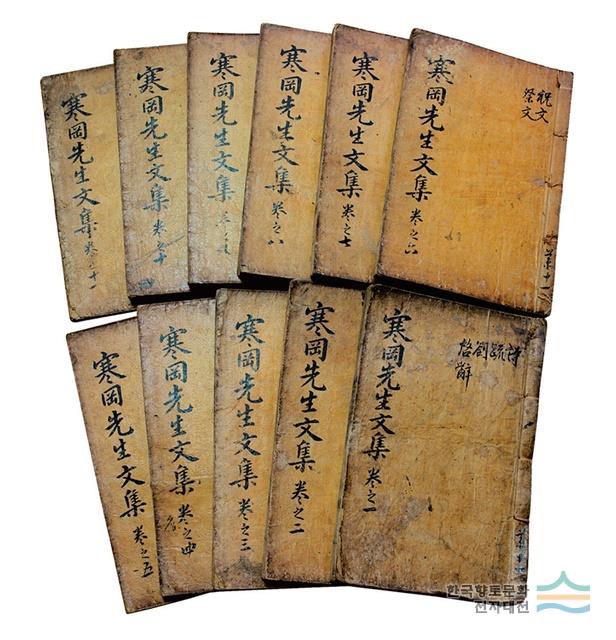 寒岡先生文集 卷之六
祝文
祭文
共十一
寒岡先生文集 卷之七
寒岡先生文集 卷之八
寒岡先生文集 卷之九
寒岡先生文集 卷之十
寒岡先生文集 卷之十一
寒岡先生文集 卷之一
詩
疏
箚
啓辭
共十一
寒岡先生文集 卷之二
寒岡先生文集 卷之三
寒岡先生文集 卷之四
寒岡先生文集 卷之五
한국향토문화
전자대전